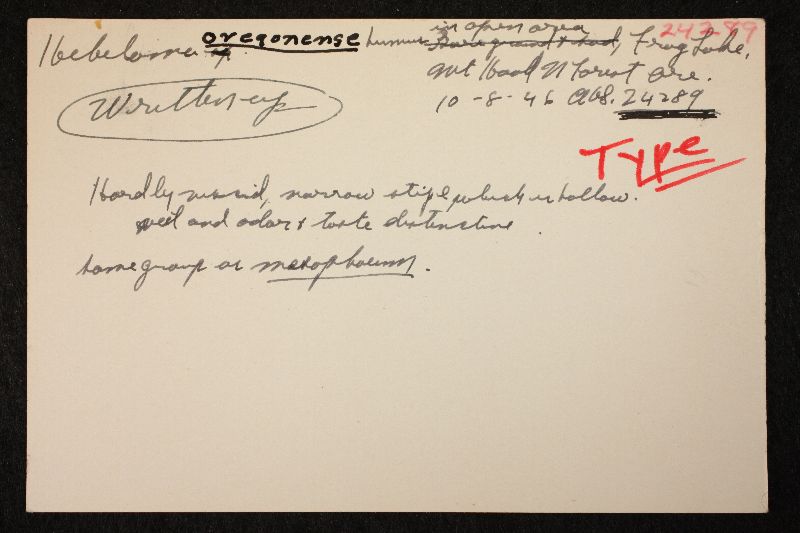 24289
in open area
Hebeloma oregonense humus Bare ground & sod, Frog Lake,
Mt Hood N Forest Ore.
Written up
10-8-46 AHS. 24289
Type
Hardly viscid, narrow stipe which is hollow.
veil and odor & taste distinctive.
same group as mesophaeum.